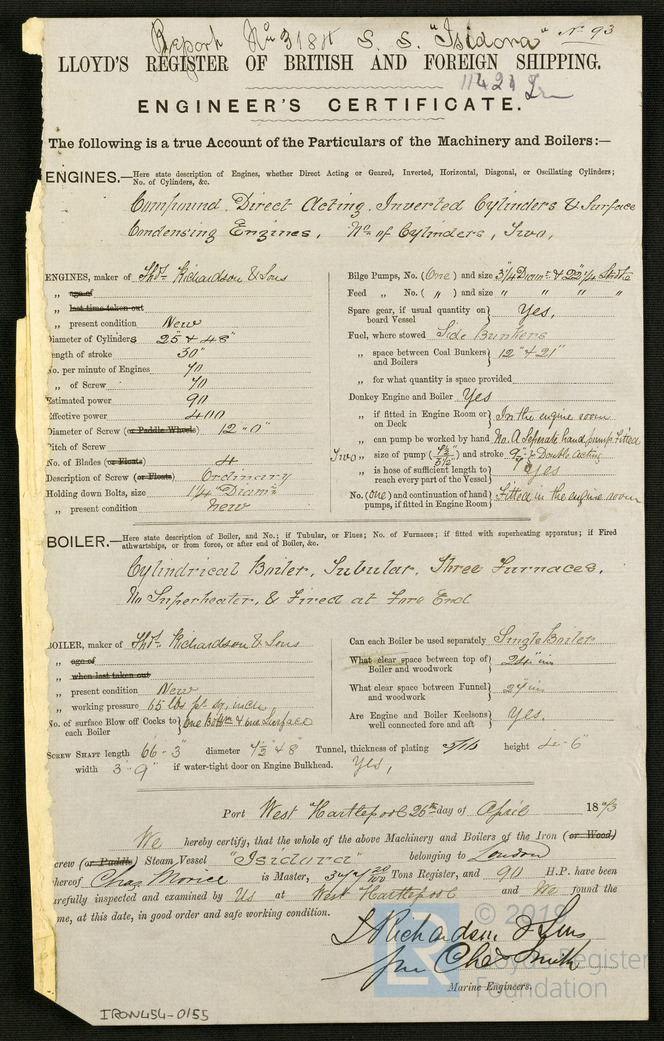 Report No 318 S. S. "Isidora" No 93
LLOYD'S REGISTER OF BRITISH AND FOREIGN SHIPPING.
11421
ENGINEER'S CERTIFICATE.
The following is a true Account of the Particulars of the Machinery and Boilers:—
ENGINES.—Here state description of Engines, whether Direct Acting or Geared, Inverted, Horizontal, Diagonal, or Oscillating Cylinders;
No. of Cylinders, &c.
Compound Direct Acting Inverted Cylinders & Surface
Condensing Engines, No. of Cylinders, Two,
ENGINES, maker of Thos. Richardson & Sons
„ age of
„ last time taken out
„ present condition New
Diameter of Cylinders 25" & 48"
ength of stroke 30"
No. per minute of Engines 70
„ of Screw 70
Estimated power 90
Effective power 400
Diameter of Screw (or Paddle Wheels) 12 " 0"
Pitch of Screw
No. of Blades (or Floats) 4
Description of Screw (or Floats) Ordinary
Holding down Bolts, size 1¼" Diamr
„ present condition New
Bilge Pumps, No. (One) and size 3¼ Diamr & 22¼ Stroke
Feed „ No. ( „ ) and size „ „ „ „
Spare gear, if usual quantity on board Vessel Yes,
Fuel, where stowed Side Bunkers
„ space between Coal Bunkers and Boilers 12" & 21"
„ for what quantity is space provided
Donkey Engine and Boiler Yes
„ if fitted in Engine Room or on Deck In the engine room
„ can pump be worked by hand No. A Seperate hand pump Fitted
Two „ size of pump ( ) and stroke 9" & Double Acting
„ is hose of sufficient length to reach every part of the Vessel Yes
No. (one) and continuation of hand pumps, if fitted in Engine Room Fitted in the engine room
BOILER.—Here state description of Boiler, and No.; if Tubular, or Flues; No. of Furnaces; if fitted with superheating apparatus; if Fired
athwartships, or from force, or after end of Boiler, &c.
Cylindrical Boiler, Tubular, Three Furnaces,
No Superheater, & Fired at Fore End
BOILER, maker of Thos. Richardson & Sons
„ age of
„ when last taken out
„ present condition New
„ working pressure 65 lbs pr sq, inch
No. of surface Blow off Cocks to each Boiler One Bottm & one Surface
Can each Boiler be used separately Single Boiler
What clear space between top of Boiler and woodwork 24" in
What clear space between Funnel and woodwork 24 in
Are Engine and Boiler Keelsons well connected fore and aft Yes.
SCREW SHAFT length 66 - 3" diameter & 8 Tunnel, thickness of plating 5/16 height 4 - 6"
width 3 - 9" if water-tight door on Engine Bulkhead. Yes,
Port West Hartlepool 26th day of April 1873
We hereby certify, that the whole of the above Machinery and Boilers of the Iron (or Wood)
crew (or Paddle) Steam Vessel "Isidora" belonging to London
hereof Chas Morice is Master, Tons Register, and 90 H.P. have been
arefully inspected and examined by Us at West Hartlepool and We found the
me, at this date, in good order and safe working condition.
T Richardson & Sons
per Chas Smith
Marine Engineers.
© 2019
LR
Lloyd's Register
Foundation
IRON454-0155